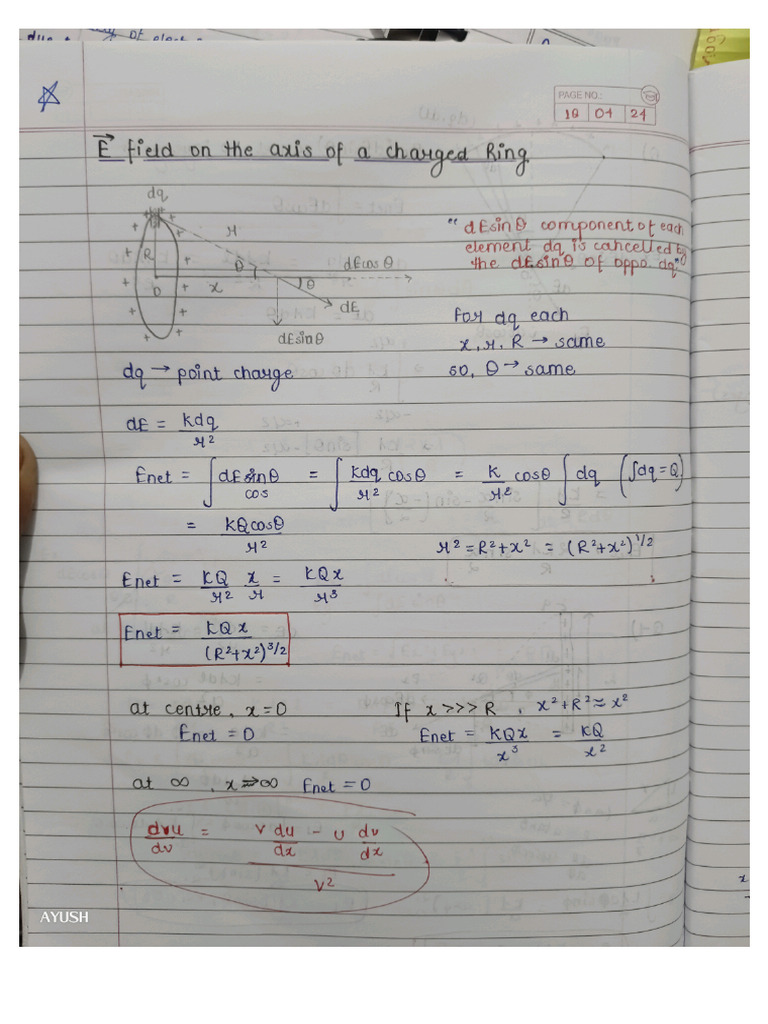 PAGE NO.:
18 04 24
E⃗ field on the axis of a charged Ring
dq
r
R
θ
dEcosθ
θ
x
O
dE
dEsinθ
"dEsinθ component of each
element dq is cancelled by
the dEsinθ of oppo. dq"
for dq each
x, r, R → same
so, θ → same
dq → point charge
dE = kdq / r²
Enet = ∫ dE sinθ cos = ∫ kdq/r² cosθ = k/r² cosθ ∫ dq (∫dq = Q)
= kQcosθ / r²
r² = R²+x² = (R²+x²)^1/2
Enet = kQ/r² x/r = kQx/r³
Enet = kQx / (R²+x²)^3/2
at centre, x=0
Enet = 0
If x >>> R, x²+R² ≈ x²
Enet = kQx/x³ = kQ/x²
at ∞, x ⇒ ∞ Enet = 0
= v du/dx - u dv/dx
v²
AYUSH